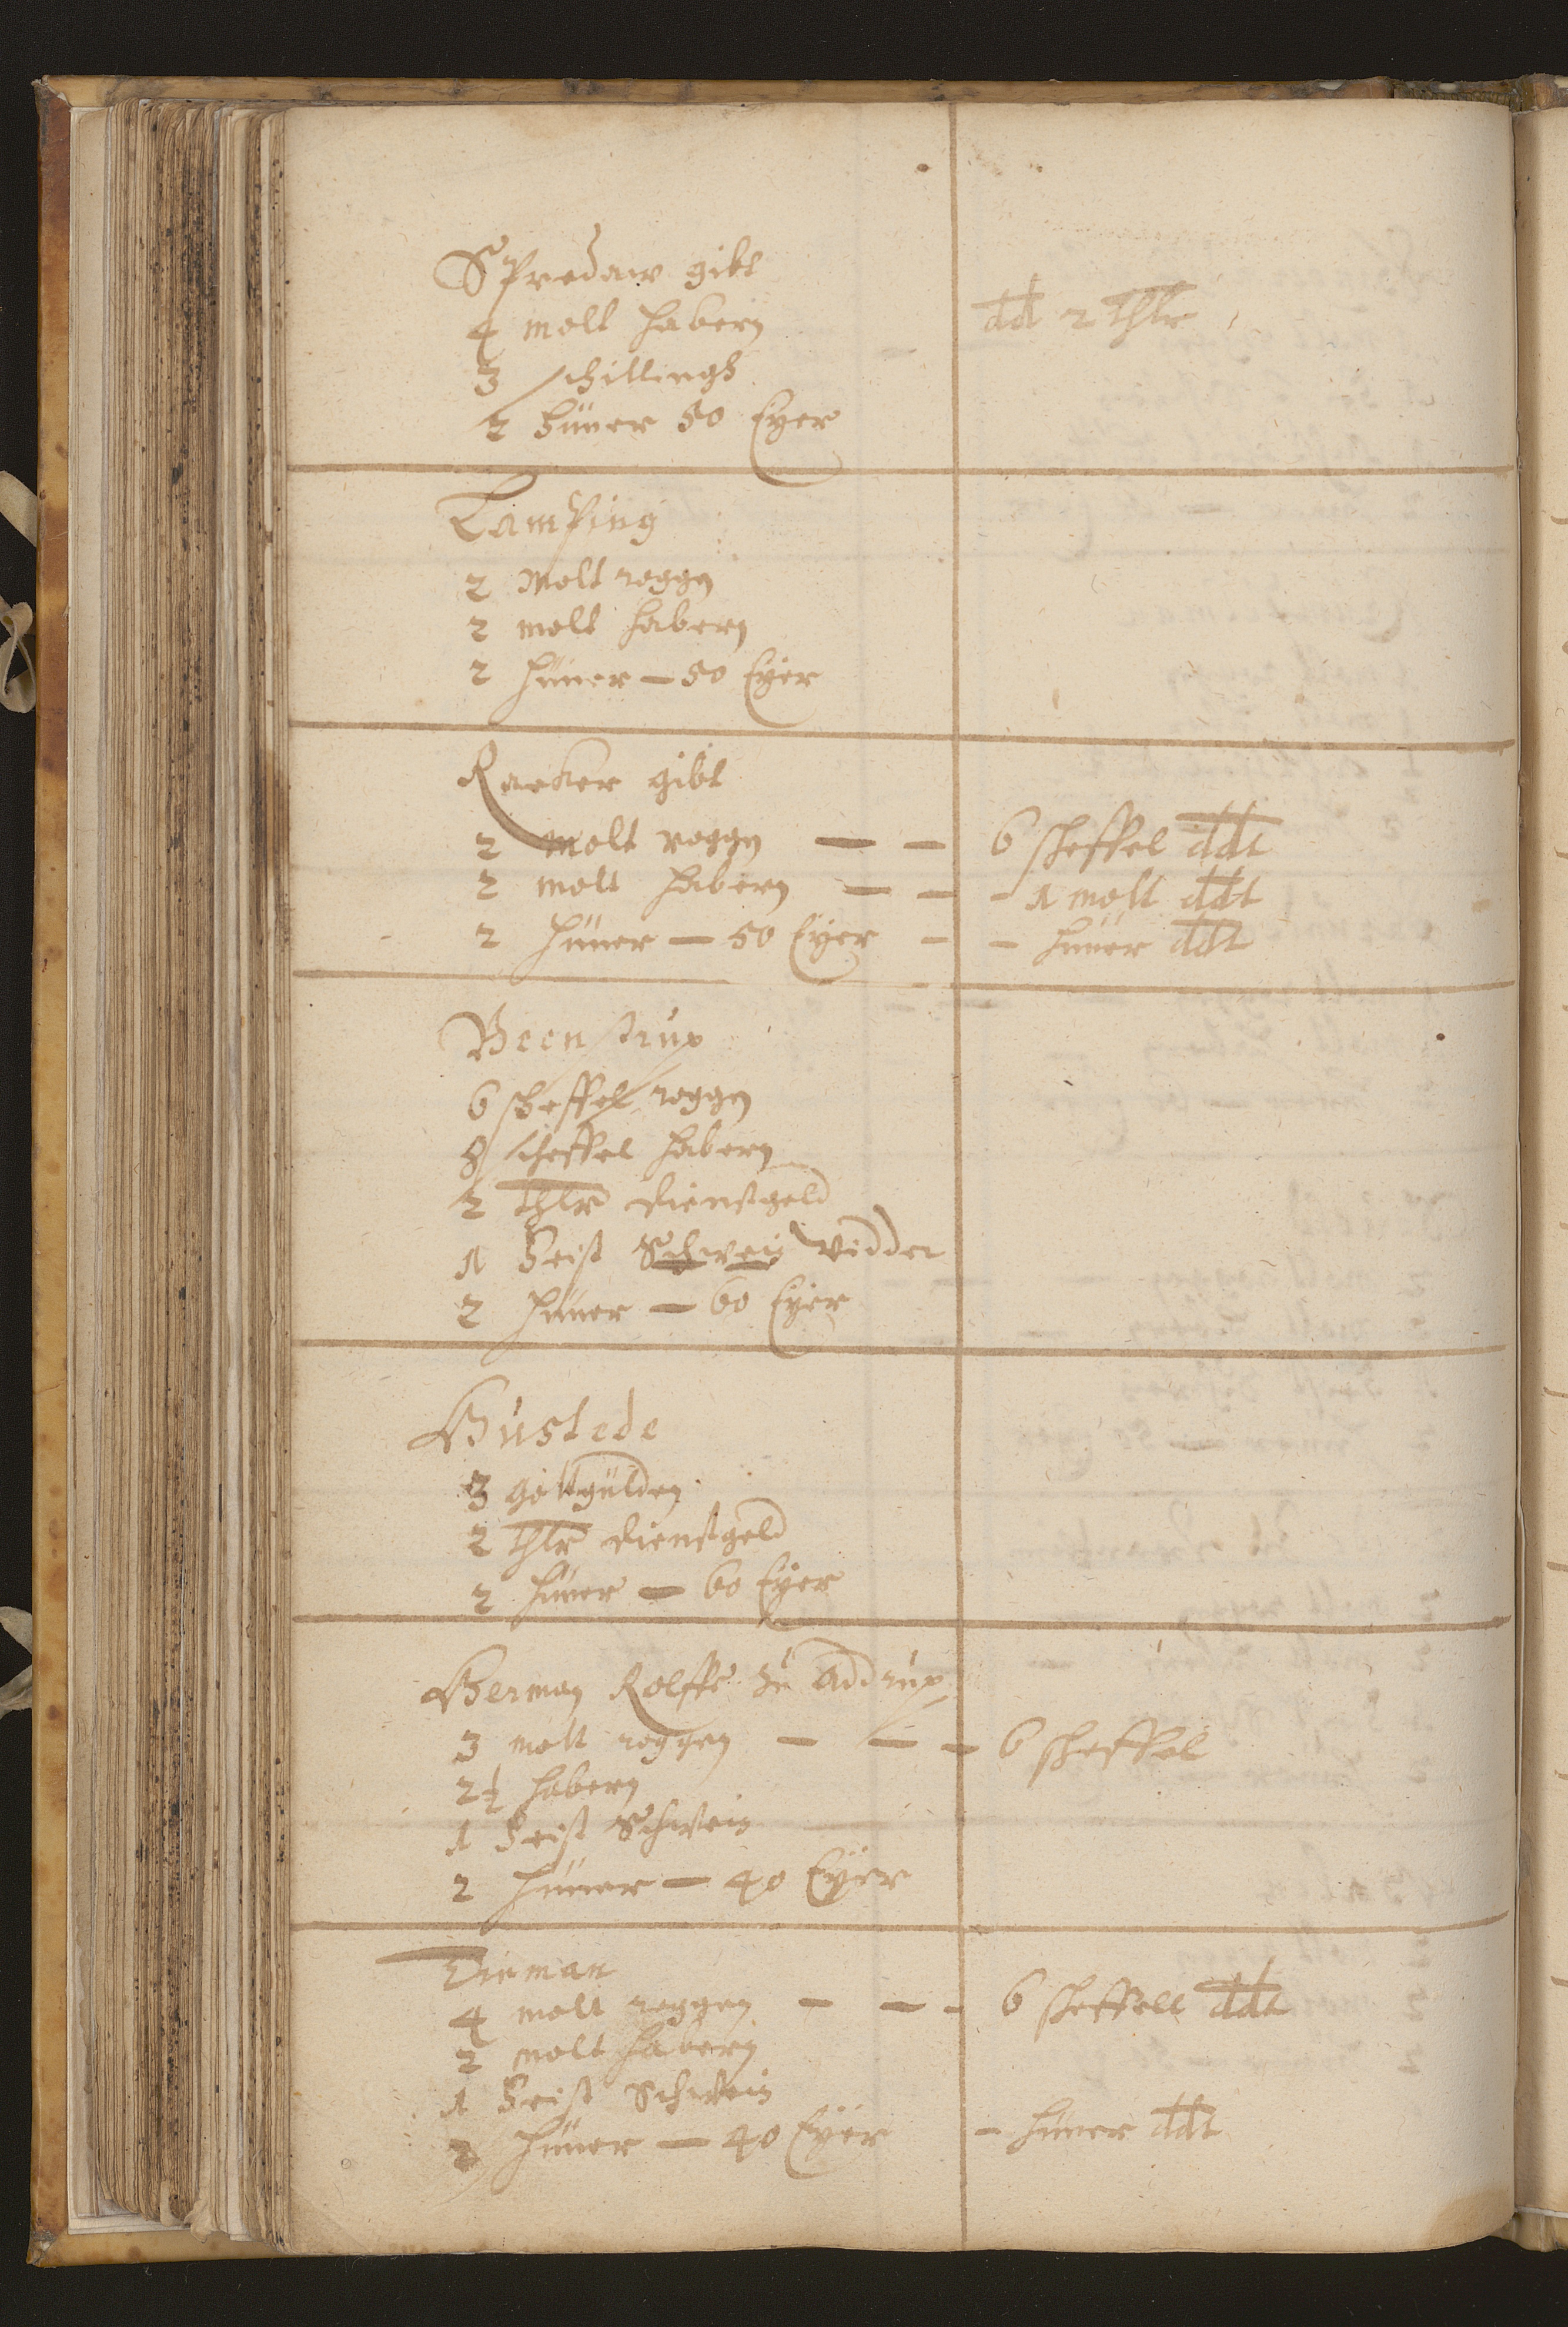 Spredaw gibt
4 molt habern
dd 2 thlr
3 schillingh
2 hüner 50 Eyer
Lamping
2 molt roggn
2 molt habern
2 hüner — 50 Eyer
Raeker gibt
2 molt roggn — — 6 scheffel ddt
2 molt habern — — - 1 molt ddt
2 hüner — 50 Eyer - - hüner ddt
Beenstrup
6 scheffel roggn
8 scheffel habern
2 thlr dienstgeld
1 feist Schwein widder
2 hüner — 60 Eyer
Bustede
3 goltgülden
2 thlr dienstgeld
2 hüner — 60 Eyer
Herman Rolffs zu Addrup
3 molt roggen — — — 6 scheffel
2½ habern
1 feist Schwein
2 hüner — 40 Eyer
Tieman
4 molt roggen — — - 6 scheffell ddt
2 molt habern
1 feist Schwein
2 hüner — 40 Eyer - hüner ddt